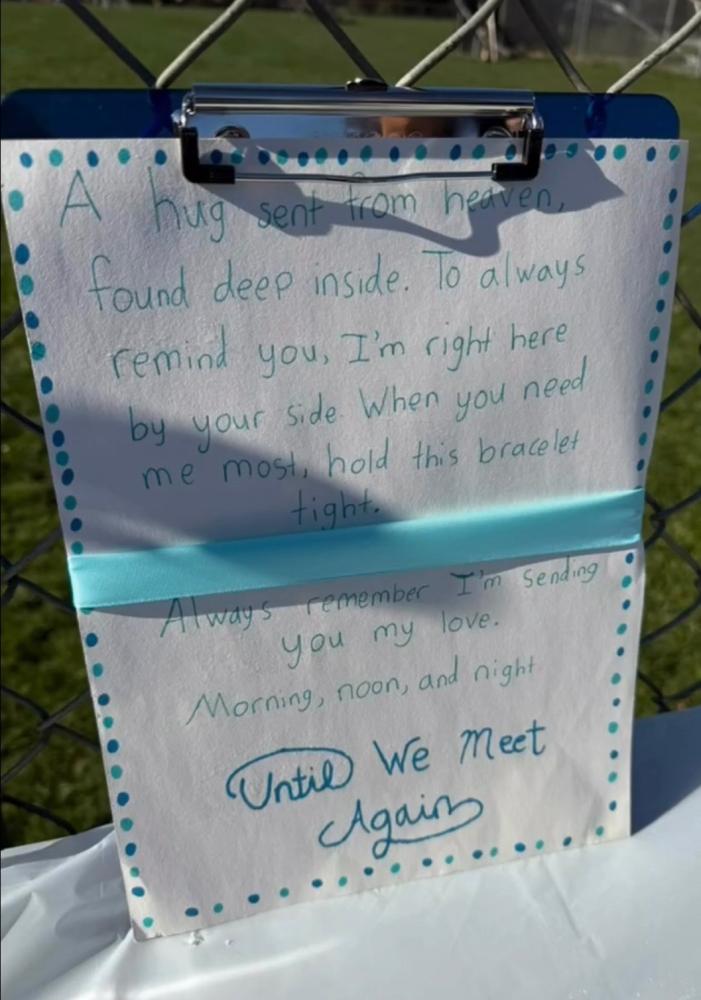 A hug sent from heaven,
found deep inside. To always
remind you, I'm right here
by your side. When you need
me most, hold this bracelet
tight.
Always remember I'm sending
you my love.
Morning, noon, and night
Until We Meet
Again